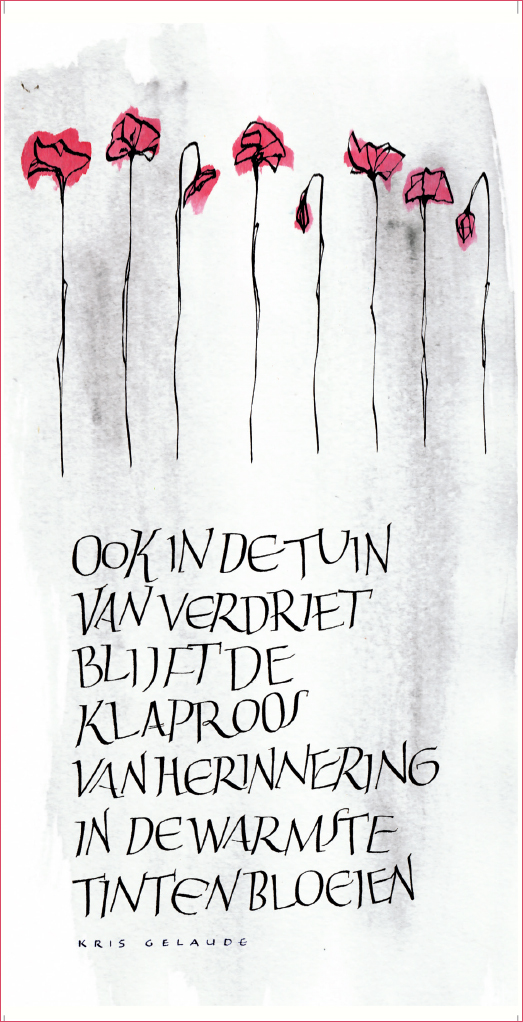 OOK IN DE TUIN
VAN VERDRIET
BLIJFT DE
KLAPROOS
VAN HERINNERING
IN DE WARMSTE
TINTEN BLOEIEN
KRIS GELAUDE